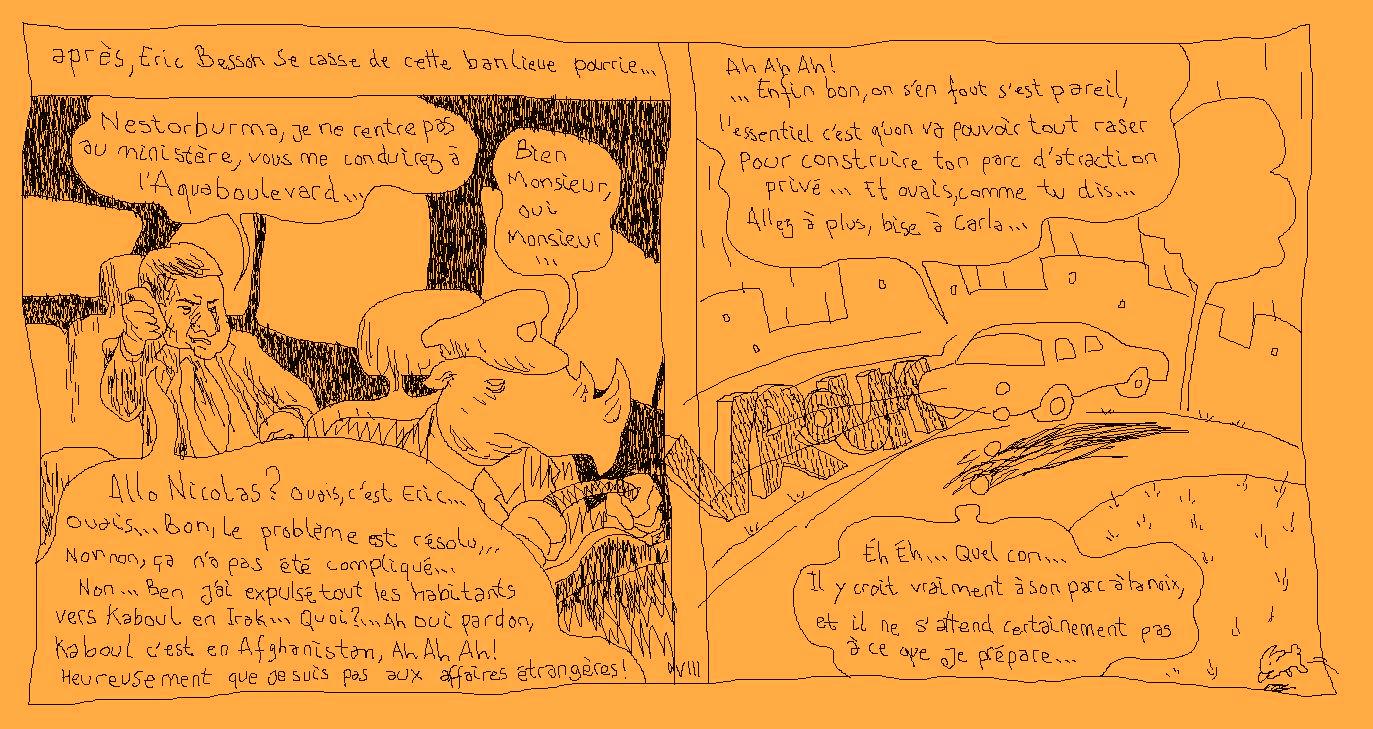 après, Eric Besson se casse de cette banlieue pourrie...
Nestorburma, je ne rentre pas
au ministère, vous me conduirez à
l'Aquaboulevard...
Bien
Monsieur,
oui
Monsieur
...
Allo Nicolas? Ouais, c'est Eric...
ouais... Bon, le problème est résolu...
Non non, ça n'a pas été compliqué...
Non... Ben j'ai expulsé tout les habitants
vers Kaboul en Irak... Quoi?...Ah oui pardon,
Kaboul c'est en Afghanistan, Ah Ah Ah!
Heureusement que je suis pas aux affaires étrangères!
Ah Ah Ah!
... Enfin bon, on s'en fout s'est pareil,
l'essentiel c'est qu'on va pouvoir tout raser
pour construire ton parc d'atraction
privé... Et ouais, comme tu dis...
Allez à plus, bise à Carla...
VROUM
Éh Éh... Quel con...
Il y croit vraiment à son parc à la noix,
et il ne s'attend certainement pas
à ce que je prépare...